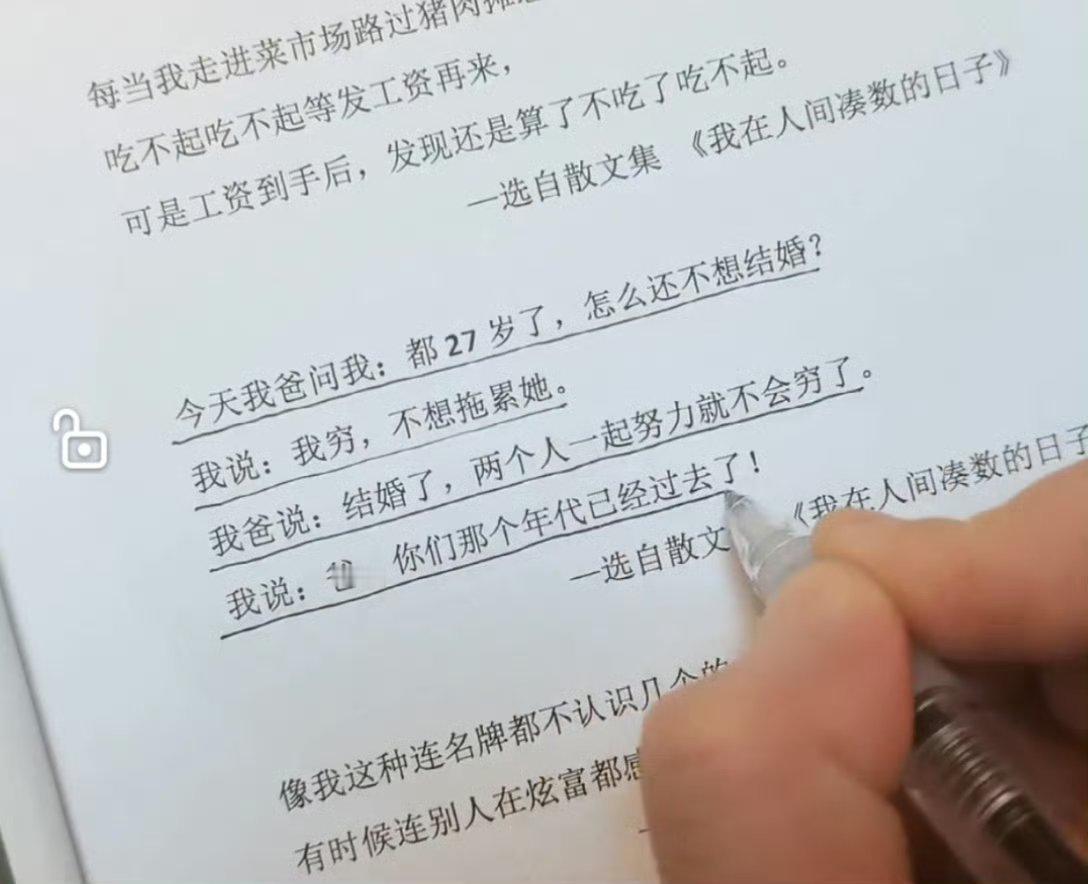 每当我走进菜市场路过猪肉摊
吃不起吃不起等发工资再来，
可是工资到手后，发现还是算了不吃了吃不起。
—选自散文集 《我在人间凑数的日子》
今天我爸问我：都 27 岁了，怎么还不想结婚？
我说：我穷，不想拖累她。
我爸说：结婚了，两个人一起努力就不会穷了。
我说： 你们那个年代已经过去了！
—选自散文 《我在人间凑数的日子
像我这种连名牌都不认识几个的
有时候连别人在炫富都感